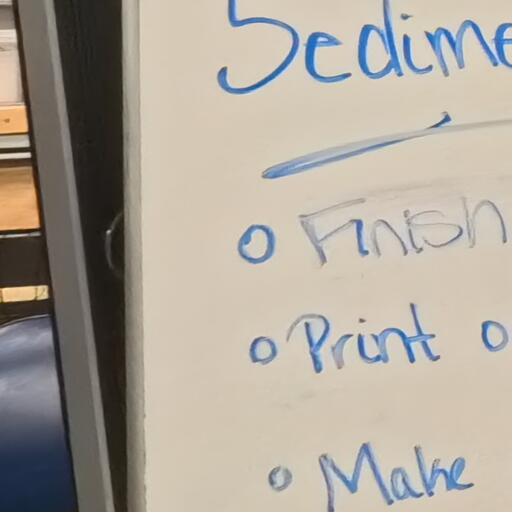 Sedime
Finish
Print o
Make